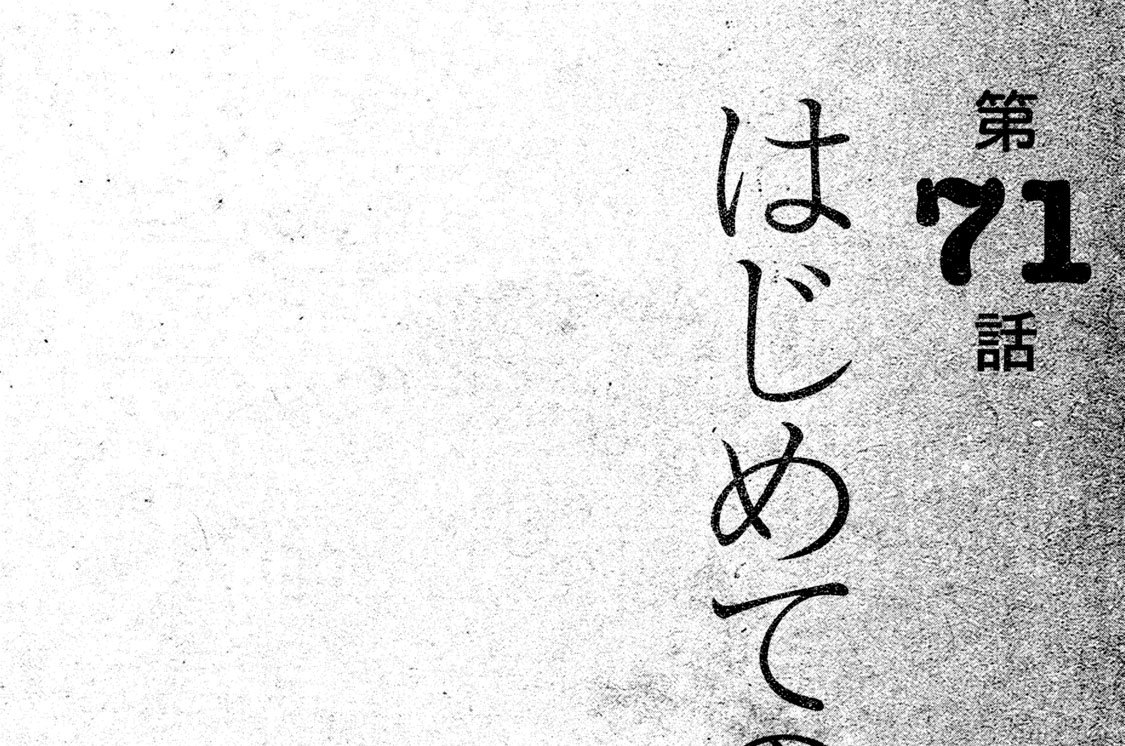 第71話
はじめての